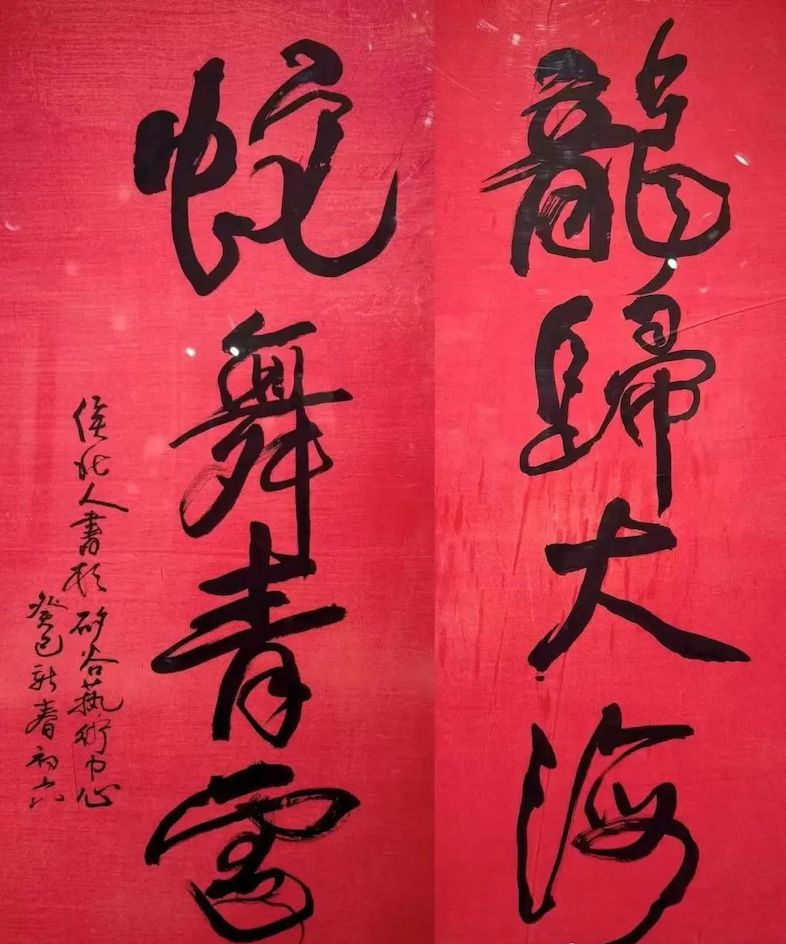 龍歸大海
蛇舞青雲
侯北人書於矽谷藝術中心
癸巳新春初六